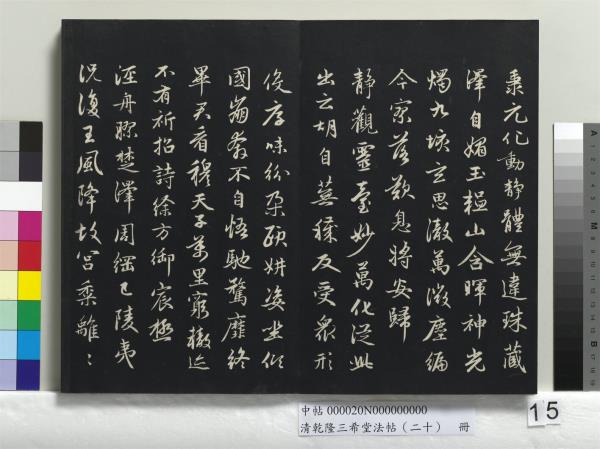 秉元化動靜體無違珠藏
澤自媚玉韞山含暉神光
燭九垓玄思徹萬微塵編
今寥落歎息將安歸
靜觀靈臺妙萬化從此
出云胡自蕪穢反受眾形
役厚味紛朵頤妍姿坐傾
國崩奔不自悟馳騖靡終
畢君看穆天子萬里窮轍迹
不有祈招詩徐方御宸極
涇舟膠楚澤周綱已陵夷
況復王風降故宮黍離〻
中帖 000020N000000000
清乾隆三希堂法帖（二十） 冊
15